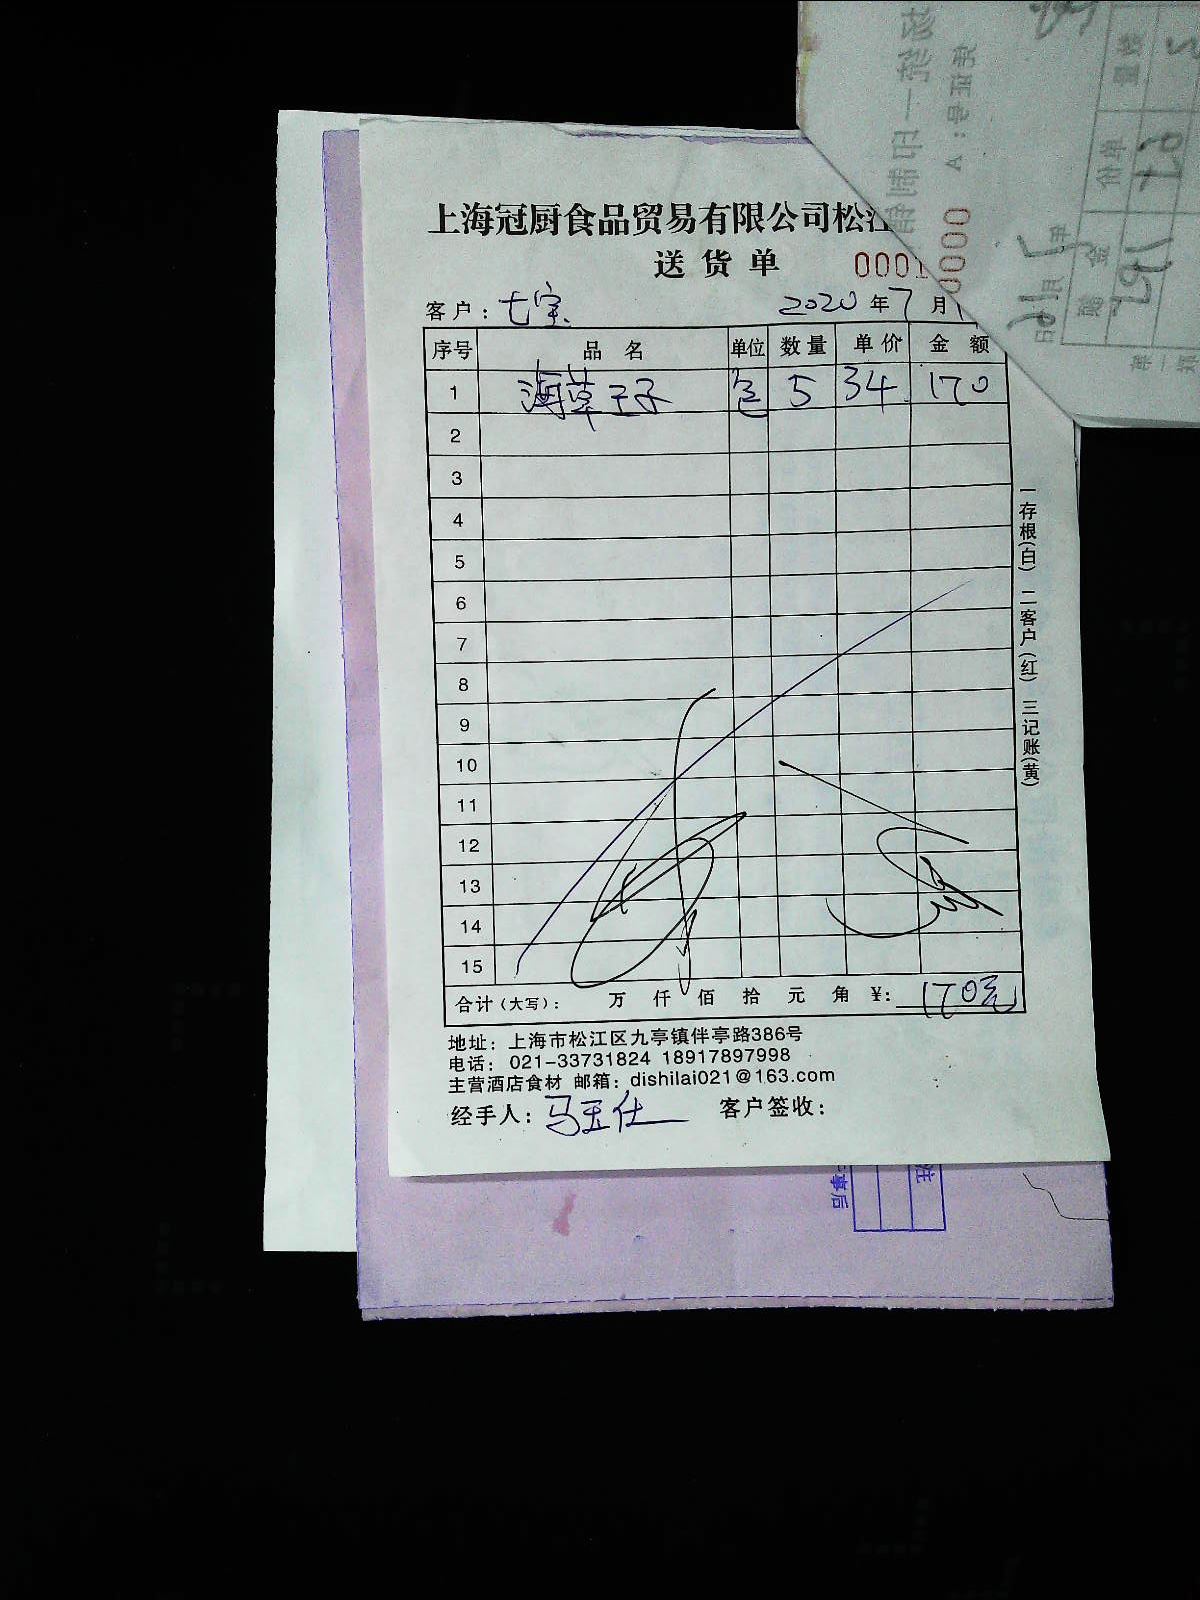 上海冠厨食品贸易有限公司松江
送货单
0001
客户：七宝 2020年7月
序号 品名 单位 数量 单价 金额
1 海草王子 包 5 34 170
2
3
4
5
6
7
8
9
10
11
12
13
14
15
合计（大写）： 万 仟 佰 拾 元 角 ¥：170元
地址：上海市松江区九亭镇伴亭路386号
电话：021-33731824 18917897998
主营酒店食材 邮箱：dishilai021@163.com
经手人：马玉仕 客户签收：
一存根(白) 二客户(红) 三记账(黄)
0000
单价
金额